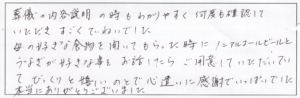 葬儀の内容説明の時もわかりやすく何度も確認して
いただきすごくていねいでした。
母の好きな食物を聞いてもらった時にノンアルコールビールと
うなぎが好きな事をお話したらご用意していただいていて
びっくりと嬉しいのとで心遣いに感謝でいっぱいでした
本当にありがとうございました。